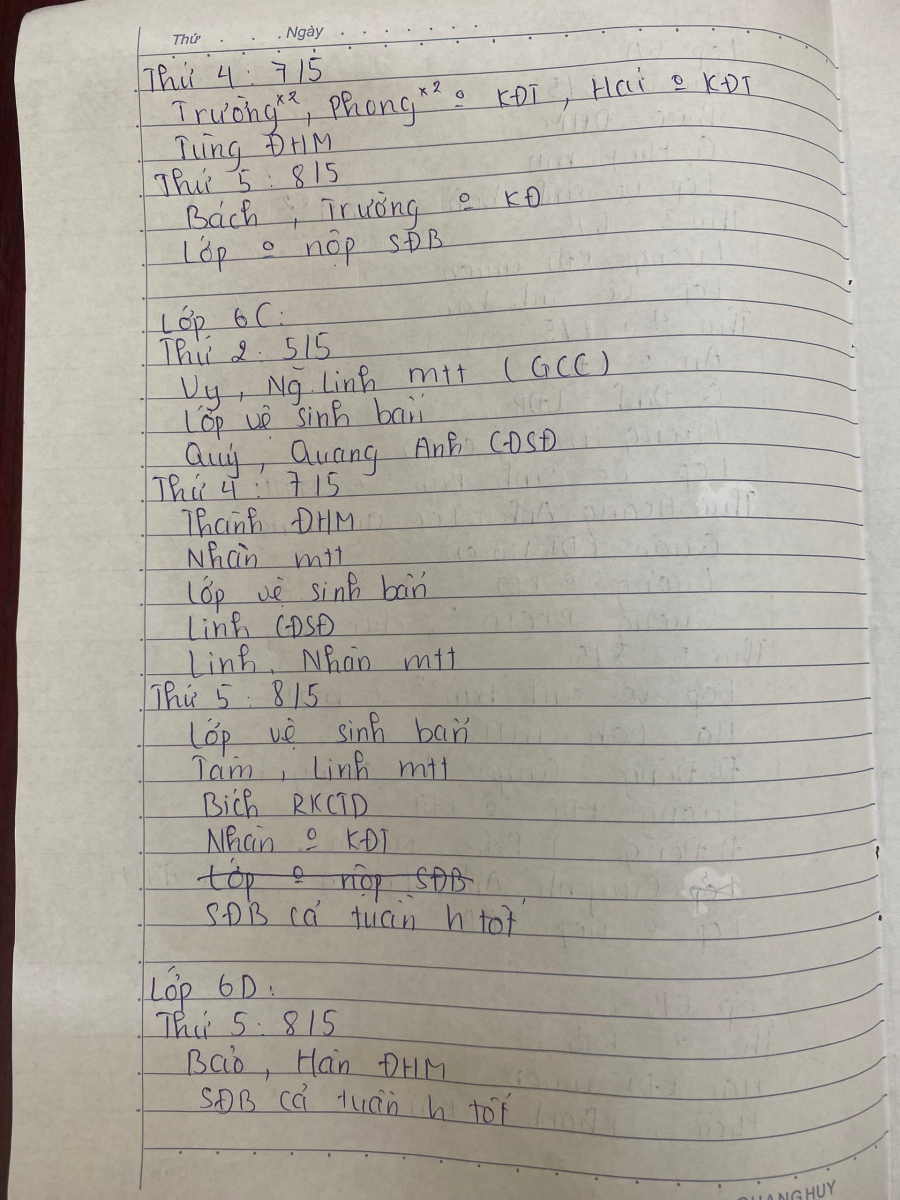 Thứ Ngày
Thứ 4: 7/5
Trường x2, Phong x2 º KĐT, Hải º KĐT
Tùng ĐHM
Thứ 5: 8/5
Bách, Trường º KĐ
Lớp º nộp SĐB
Lớp 6C:
Thứ 2: 5/5
Vy, Ng Linh mtt (GCE)
Lớp vệ sinh bẩn
Quý, Quang Anh CĐSĐ
Thứ 4: 7/5
Thanh ĐHM
Nhàn mtt
Lớp vệ sinh bẩn
Linh CĐSĐ
Linh, Nhàn mtt
Thứ 5: 8/5
Lớp vệ sinh bẩn
Tâm, Linh mtt
Bích RKCTD
Nhàn º KĐT
Lớp º nộp SĐB
SĐB cả tuần h tốt
Lớp 6D:
Thứ 5: 8/5
Bảo, Hân ĐHM
SĐB cả tuần h tốt
QUANG HUY